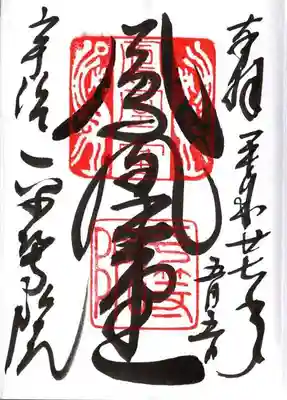 奉拝
平成廿七年
五月五日
鳳凰堂
宇治 平等院